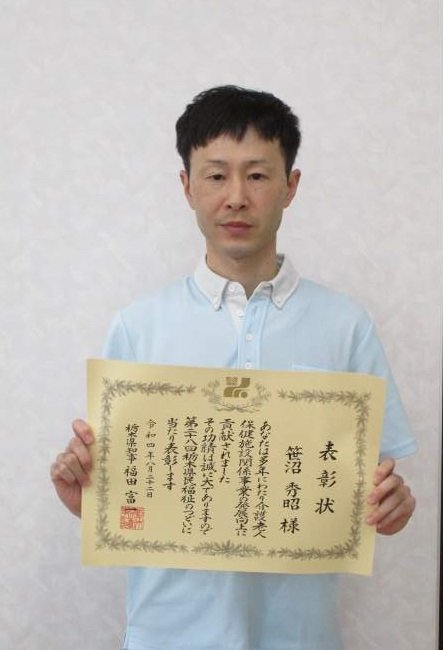 表彰状
笹沼秀昭様
あなたは多年にわたり介護老人
保健施設関係事業の発展向上に
貢献されました
その功績は誠に大でありますので
第二十八回栃木県民福祉のつどいに
当たり表彰します
令和四年八月二十二日
栃木県知事 福田富一